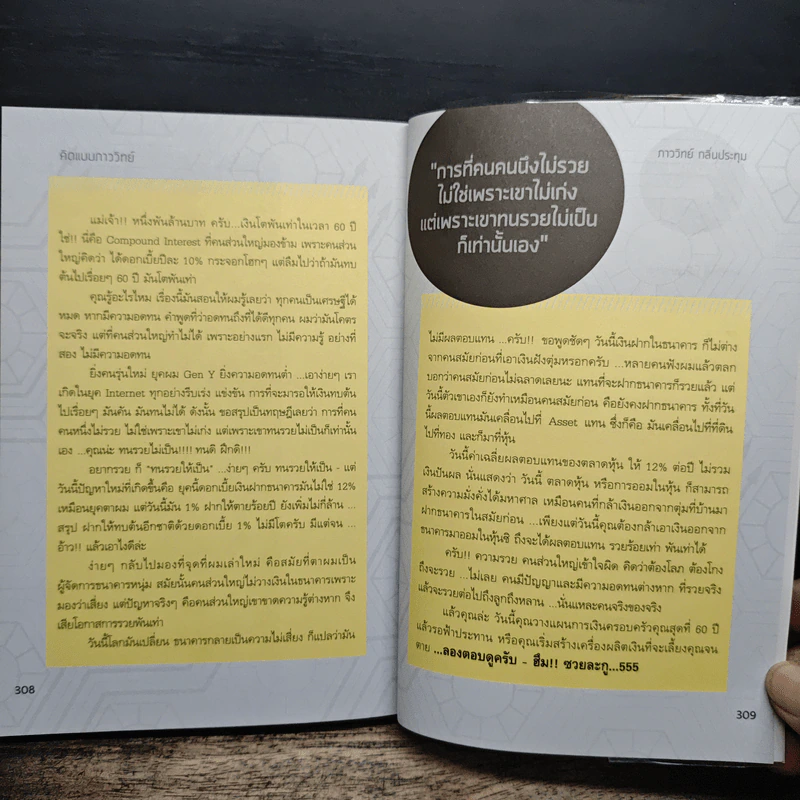 คิดแบบภาววิทย์
แม่เจ้า!! หนึ่งพันล้านบาท ครับ...เงินโตพันเท่าในเวลา 60 ปี
ใช่!! นี่คือ Compound Interest ที่คนส่วนใหญ่มองข้าม เพราะคนส่วน
ใหญ่คิดว่า ได้ดอกเบี้ยปีละ 10% กระจอกโฮกๆ แต่ลืมไปว่าถ้ามันทบ
ต้นไปเรื่อยๆ 60 ปี มันโตพันเท่า
คุณรู้อะไรไหม เรื่องนี้มันสอนให้ผมรู้เลยว่า ทุกคนเป็นเศรษฐีได้
หมด หากมีความอดทน คำพูดที่ว่าอดทนถึงที่ได้ดีทุกคน ผมว่ามันโคตร
จะจริง แต่ที่คนส่วนใหญ่ทำไม่ได้ เพราะอย่างแรก ไม่มีความรู้ อย่างที่
สอง ไม่มีความอดทน
ยิ่งคนรุ่นใหม่ ยุคผม Gen Y ยิ่งความอดทนต่ำ ...เอาง่ายๆ เรา
เกิดในยุค Internet ทุกอย่างรีบเร่ง แข่งขัน การที่จะมารอให้เงินทบต้น
ไปเรื่อยๆ มันคัน มันทนไม่ได้ ดังนั้น ขอสรุปเป็นทฤษฎีเลยว่า การที่คน
คนหนึ่งไม่รวย ไม่ใช่เพราะเขาไม่เก่ง แต่เพราะเขาทนรวยไม่เป็นก็เท่านั้น
เอง ...คุณน่ะ ทนรวยไม่เป็น!!!! ทนดิ ฝึกดิ!!!
อยากรวย ก็ "ทนรวยให้เป็น" ...ง่ายๆ ครับ ทนรวยให้เป็น - แต่
วันนี้ปัญหาใหม่ที่เกิดขึ้นคือ ยุคนี้ดอกเบี้ยเงินฝากธนาคารมันไม่ใช่ 12%
เหมือนยุคตาผม แต่วันนี้มัน 1% ฝากให้ตายร้อยปี ยังเพิ่มไม่กี่ล้าน ...
สรุป ฝากให้ทบต้นอีกชาติด้วยดอกเบี้ย 1% ไม่มีโตครับ มีแต่จน ...
อ้าว!! แล้วเอาไงดีล่ะ
ง่ายๆ กลับไปมองที่จุดที่ผมเล่าใหม่ คือสมัยที่ตาผมเป็น
ผู้จัดการธนาคารหนุ่ม สมัยนั้นคนส่วนใหญ่ไม่วางเงินในธนาคารเพราะ
มองว่าเสี่ยง แต่ปัญหาจริงๆ คือคนส่วนใหญ่เขาขาดความรู้ต่างหาก จึง
เสียโอกาสการรวยพันเท่า
วันนี้โลกมันเปลี่ยน ธนาคารกลายเป็นความไม่เสี่ยง ก็แปลว่ามัน
308
ภาววิทย์ กลิ่นประทุม
"การที่คนคนนึงไม่รวย
ไม่ใช่เพราะเขาไม่เก่ง
แต่เพราะเขาทนรวยไม่เป็น
ก็เท่านั้นเอง"
ไม่มีผลตอบแทน ...ครับ!! ขอพูดชัดๆ วันนี้เงินฝากในธนาคาร ก็ไม่ต่าง
จากคนสมัยก่อนที่เอาเงินฝังตุ่มหรอกครับ ...หลายคนฟังผมแล้วตลก
บอกว่าคนสมัยก่อนไม่ฉลาดเลยนะ แทนที่จะฝากธนาคารก็รวยแล้ว แต่
วันนี้ตัวเขาเองก็ยังทำเหมือนคนสมัยก่อน คือยังคงฝากธนาคาร ทั้งที่วัน
นี้ผลตอบแทนมันเคลื่อนไปที่ Asset แทน ซึ่งก็คือ มันเคลื่อนไปที่ที่ดิน
ไปที่ทอง และก็มาที่หุ้น
วันนี้ค่าเฉลี่ยผลตอบแทนของตลาดหุ้น ให้ 12% ต่อปี ไม่รวม
เงินปันผล นั่นแสดงว่า วันนี้ ตลาดหุ้น หรือการออมในหุ้น ก็สามารถ
สร้างความมั่งคั่งได้มหาศาล เหมือนคนที่กล้าเอาเงินออกจากตุ่มที่บ้านมา
ฝากธนาคารในสมัยก่อน ...เพียงแต่วันนี้คุณต้องกล้าเอาเงินออกจาก
ธนาคารมาออมในหุ้นซิ ถึงจะได้ผลตอบแทน รวยร้อยเท่า พันเท่าได้
ครับ!! ความรวย คนส่วนใหญ่เข้าใจผิด คิดว่าต้องโลภ ต้องโกง
ถึงจะรวย ...ไม่เลย คนมีปัญญาและมีความอดทนต่างหาก ที่รวยจริง
แล้วจะรวยต่อไปถึงลูกถึงหลาน ...นั่นแหละคนจริงของจริง
แล้วคุณล่ะ วันนี้คุณวางแผนการเงินครอบครัวคุณสุดที่ 60 ปี
แล้วรอฟ้าประทาน หรือคุณเริ่มสร้างเครื่องผลิตเงินที่จะเลี้ยงคุณจน
ตาย ...ลองตอบดูครับ - ฮึม!! ซวยละกู...555
309